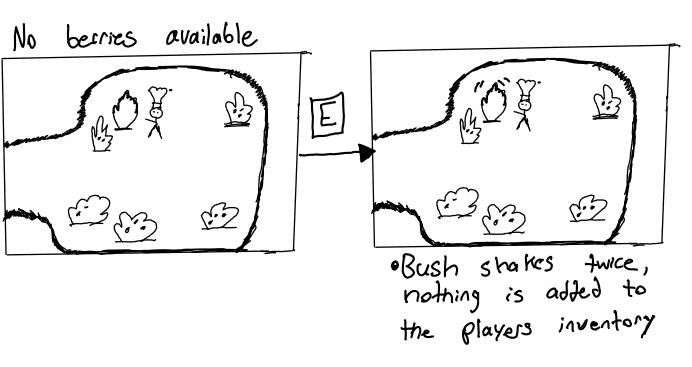 No berries available
E
•Bush shakes twice,
nothing is added to
the players inventory